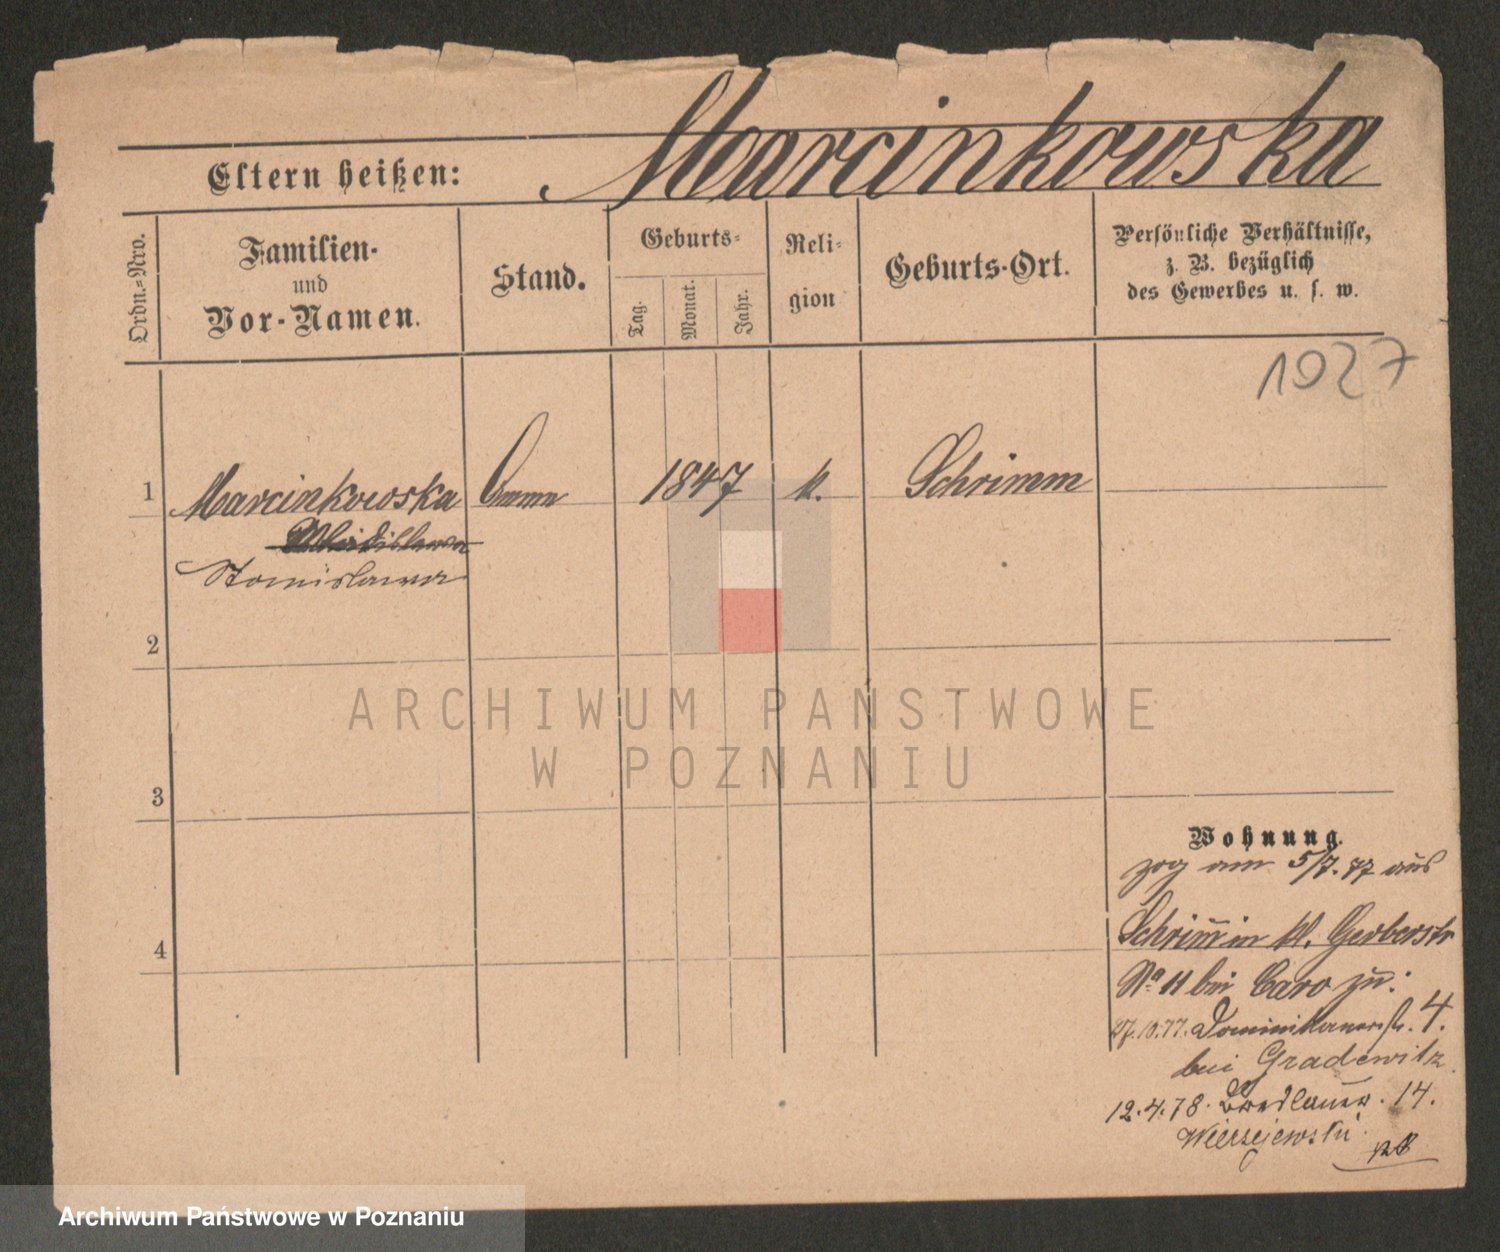 Marcinkowska
Eltern heißen:
Ordn.-Nro.
Familien-
und
Vor-Namen.
Stand.
Geburts-
Tag.
Monat.
Jahr.
Reli-
gion
Geburts-Ort.
Persönliche Verhältnisse,
z. B. bezüglich
des Gewerbes u. s. w.
1027
1 Marcinkowska Amme 1847 k. Schrimm
Wladislawa
Stanislawa
2
3
4
ARCHIWUM PAŃSTWOWE
W POZNANIU
Wohnung.
zog am 5/7. 77 aus
Schrim̄ in kl. Gerberstr
No 11 bei Caro zu.
27.10.77. Dominikanerstr. 4.
bei Gradewitz.
12.4.78. Breslauer. 14.
Wierzejewski
Archiwum Państwowe w Poznaniu